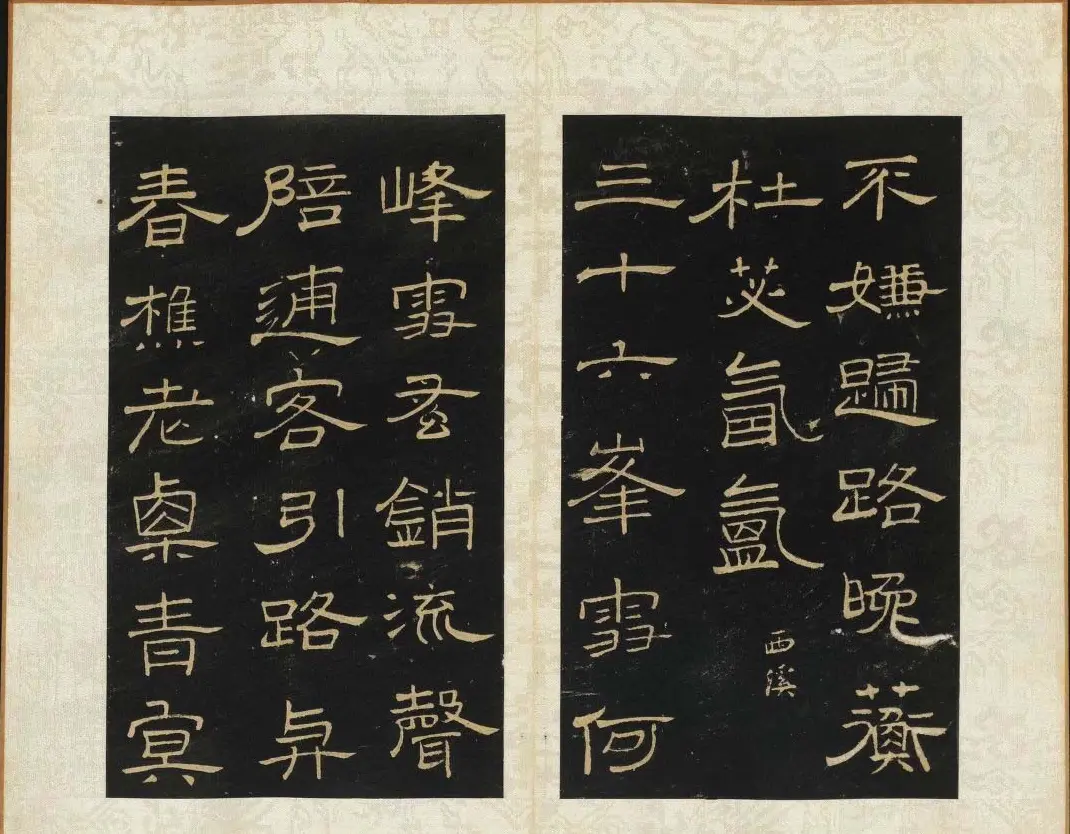 不嫌歸路晚蘅
杜苾氤氳
西溪
三十六峯雪何
峰雪蚤銷流聲
陪逋客引路與
春樵老栗青冥